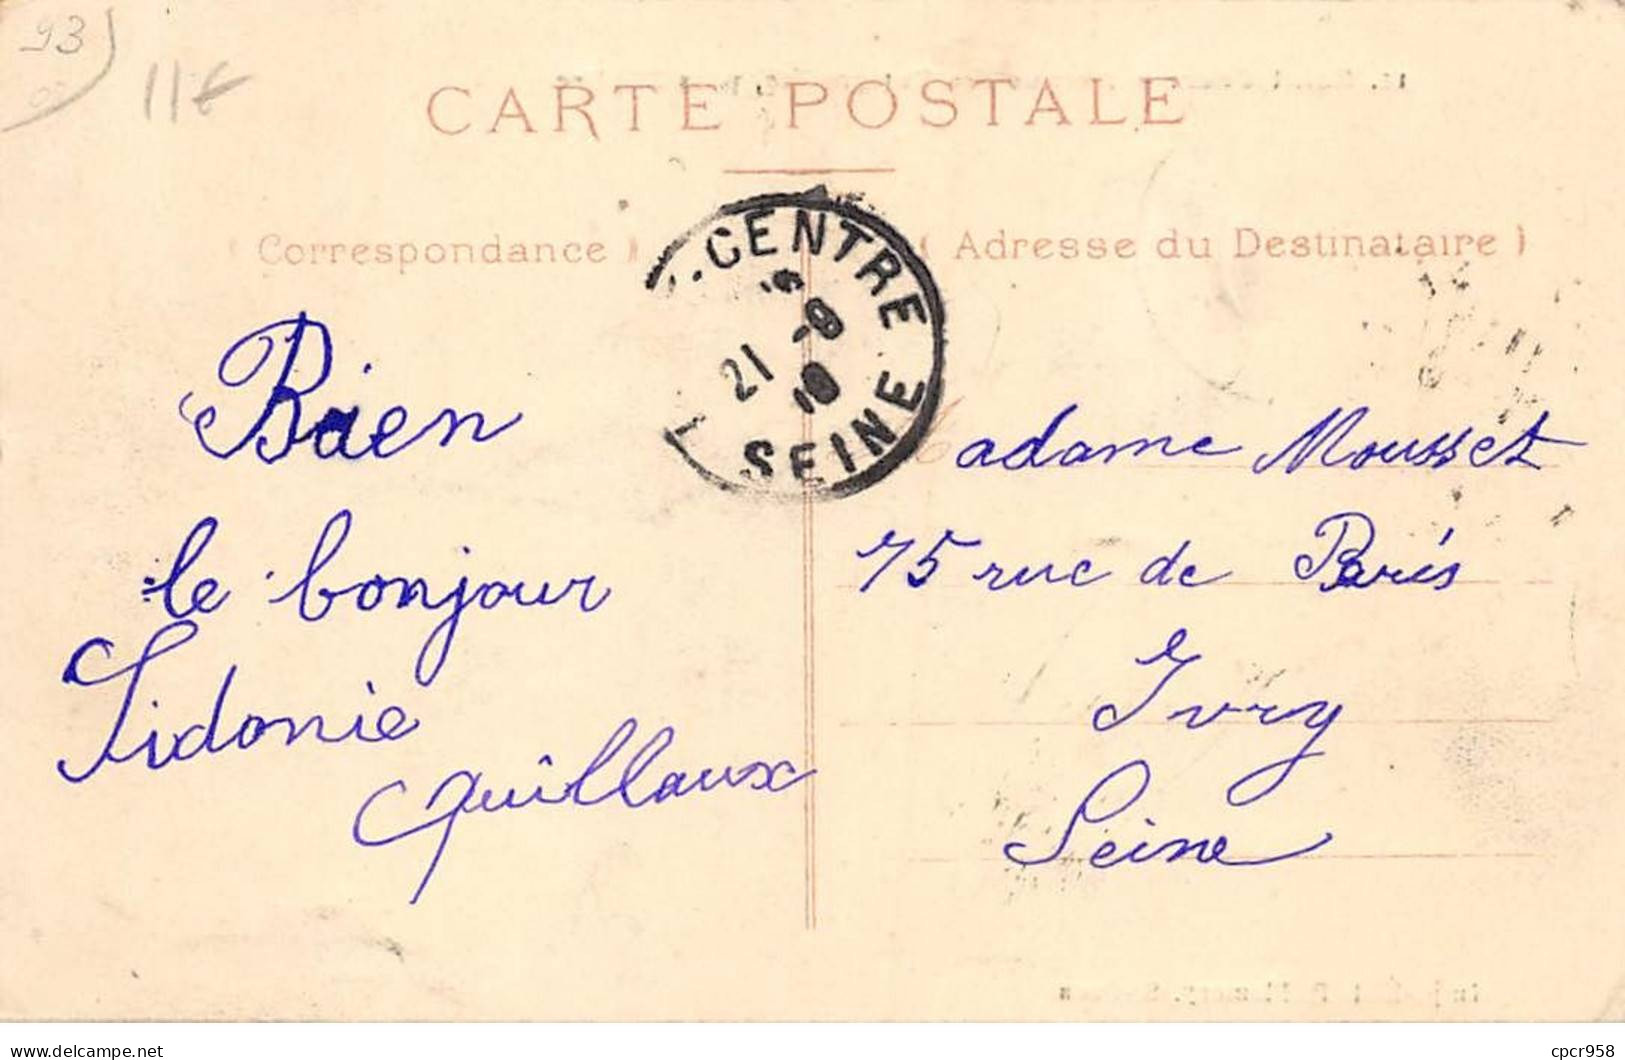 93
11€
CARTE POSTALE
(Correspondance)
(Adresse du Destinataire)
CENTRE
21 -8
10
SEINE
Bien
le bonjour
Sidonie
Guillaux
Madame Mousset
75 rue de Paris
Ivry
Seine
delcampe.net
cpcr958